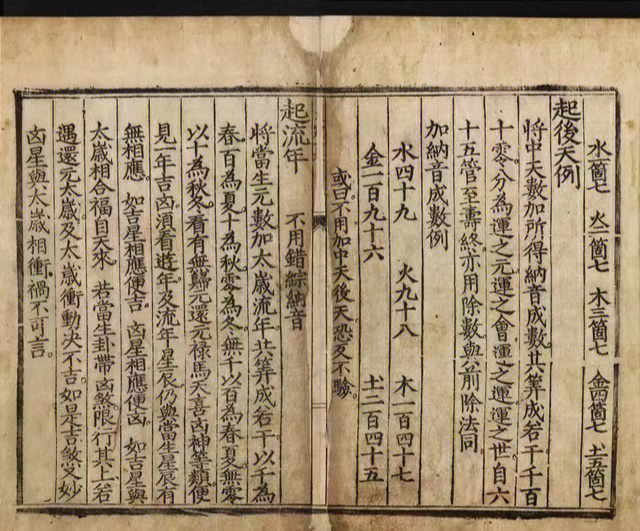 水一箇七 火二箇七 木三箇七 金四箇七 土五箇七
起後天例
將中天數加所得納音成數共筭成若干千百
十零分為運之元運之會運之運運之世自六
十五管至壽終亦用除數與前除法同
加納音成數例
水四十九 火九十八 木一百四十七
金一百九十六 土二百四十五
或曰不用加中天後天恐又不驗
起流年 不用錯綜納音
將當生元數加太歲流年共筭成若干以千為
春百為夏十為秋零為冬無千以百為春夏無零
以十為秋冬看有無歸元還元祿馬天喜凶神等類便
見一年吉凶須看遊年及流年星辰仍與當生星辰有
無相應如吉星相應便吉凶星相應便凶如吉星與
太歲相合福自天來若當生卦帶凶煞限行其上若
遇還元太歲及太歲衝動決不吉如是吉煞尤妙
凶星與太歲相衝禍不可言